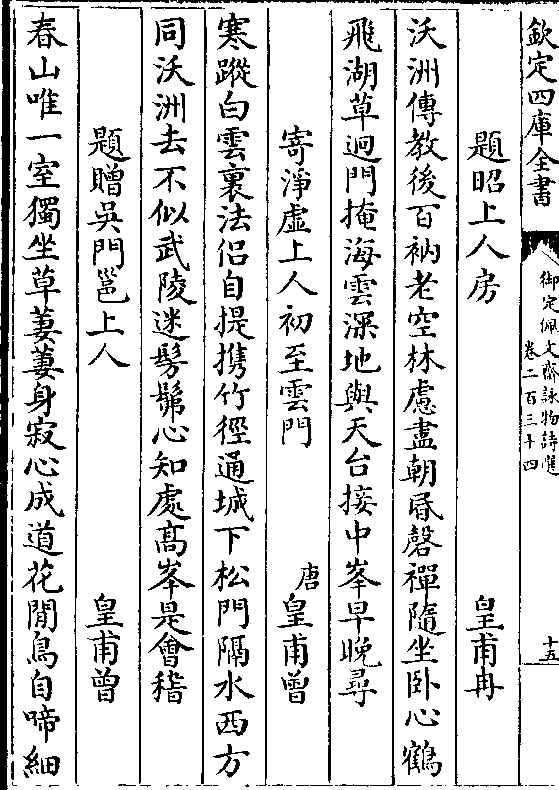 欽定四庫全書
御定佩文齋詠物詩選
卷二百三十四
十五
題昭上人房
皇甫冉
沃洲傳教後百衲老空林慮盡朝昏磬禪隨坐卧心鶴
飛湖草迥門掩海雲深地與天台接中峯早晚尋
寄淨虛上人初至雲門
唐皇甫曾
寒蹤白雲裏法侶自提攜竹徑通城下松門隔水西方
同沃洲去不似武陵迷髣髴心知處高峯是會稽
題贈吳門邕上人
皇甫曾
春山唯一室獨坐草萋萋身寂心成道花閒鳥自啼細